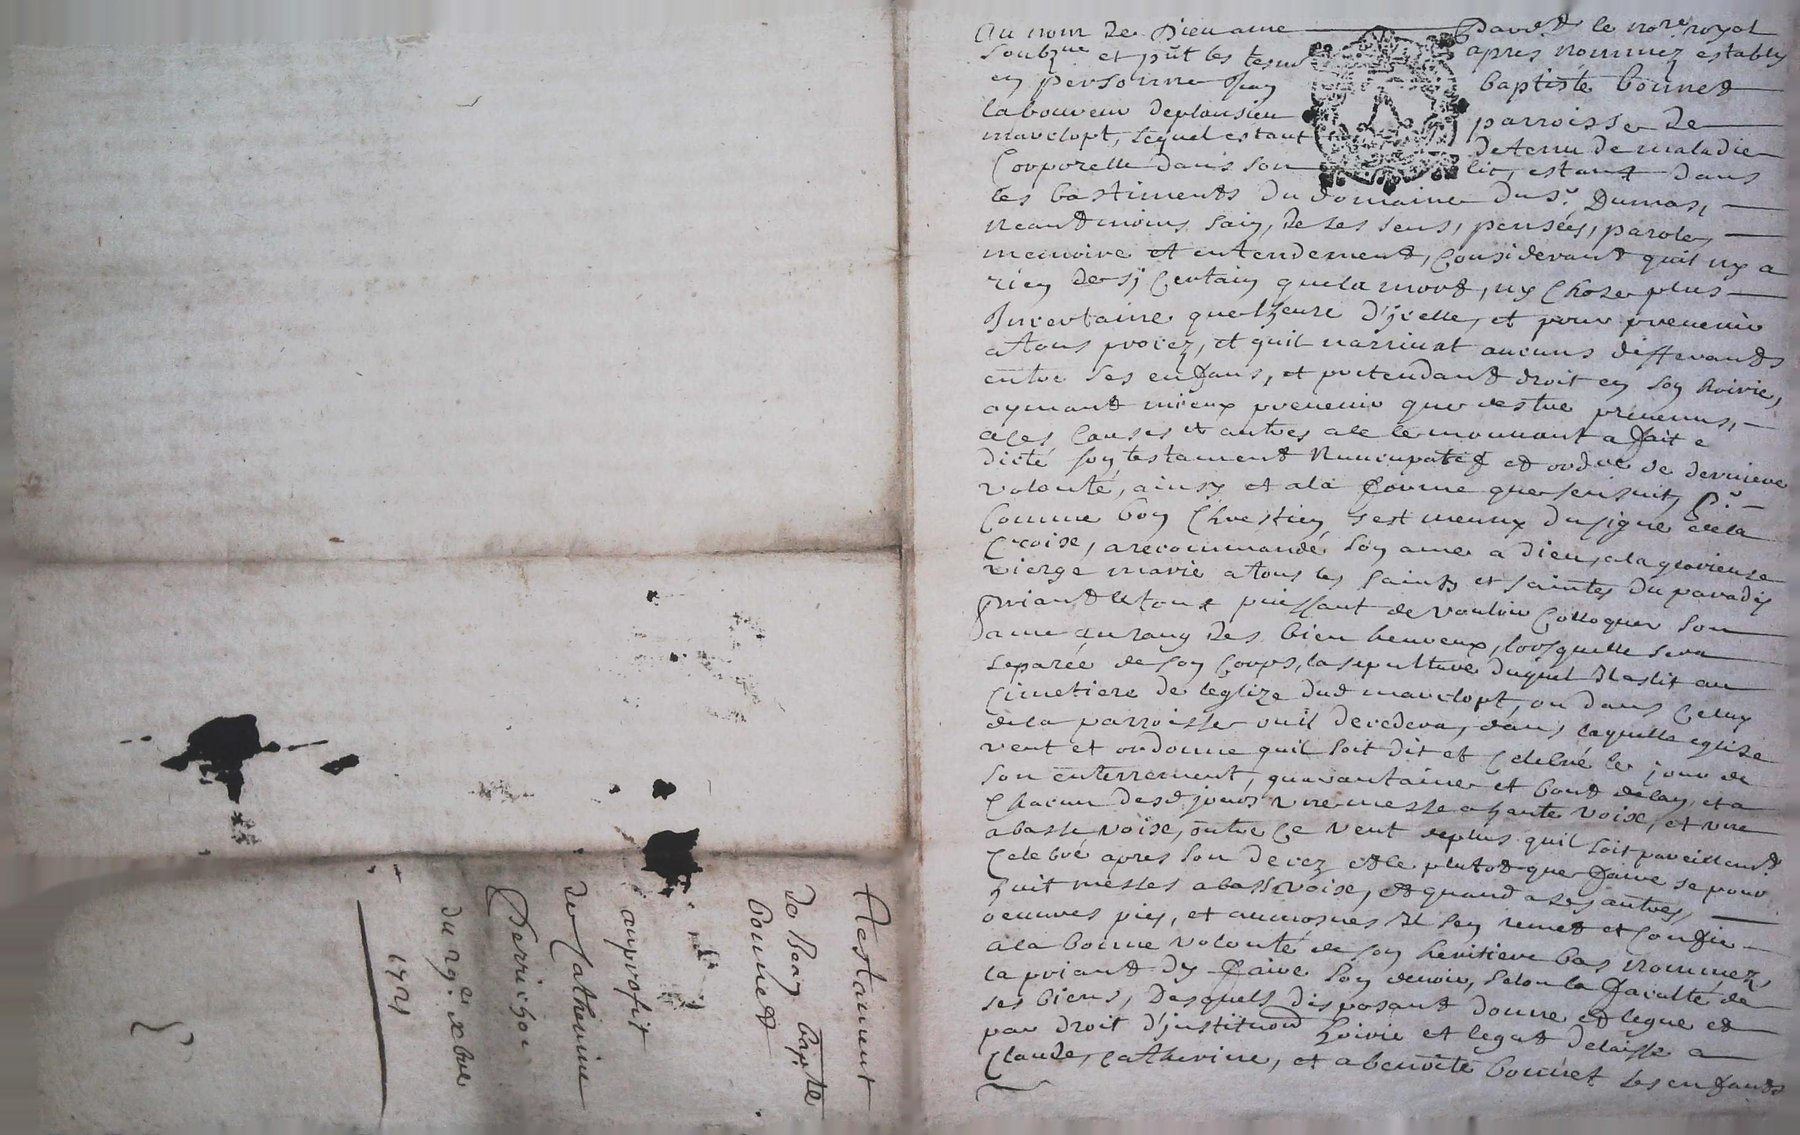 Testament
de Bean Bapte
Bonned
au proffit
de Catherine
Perrichon
du 29e xbre
1721
Au nom de Dieu amen Pard.t le no.re royal
soubz.ne et pñt les tesm apres nommez estably
en personne Jean baptiste bonned
laboureur de plousieu parroisse de
marclopt, lequel estant detenu de maladie
Corporelle dans son lit, estant dans
les bastiments du domaine du s.r Dumas,
neantmoins sain, de ses sens, pensées, parole,
memoire et entendement, Considerant quil ny a
rien de sj Certain que la mort, ny Chose plus
Incertaine que lheure d'jcelle, et pour prevenir
a tous procez, et quil narrivat aucuns differands
entre ses enfans, et pretendant droit en son hoirie,
aymant mieux prevenir que destre prevenus,
a ces Causes et autres a ce le mouvant a fait e
dicté son testament Nuncupatif et ordre de derniere
volonté, ainsy et a la forme que sensuit, P.r
Comme bon Chrestien sest meuny du signe de la
Croise, a recommandé son ame a dieu, a la glorieuse
vierge marie a tous les saints et saintes du paradis
Priant le tout puissant de vouloir Colloquer son
ame au rang des bien heureux, lorsquelle sera
separée de son Corps, la sepulture duquel Il eslit au
Cimetiere de leglize dud marclopt, ou dans Celuy
de la parroisse ou il decedera, dans laquelle eglise
veut et ordonne quil soit dit et Celebré le jour de
son enterrement, quarantaine et bout de lan, et a
Chacun desd jours vne messe a haute voise, et vne
a basse voise, outre Ce veut de plus quil soit pareillemt
Celebré apres son decez et le plutot que faire se pour
huit messes a basse voise, et quand a ses autres,
oeuvres pies, et aumosnes Il sen remet et Confie
a la bonne volonté de son heritiere bas nommez,
la priant dy faire son devoir, selon la faculté de
ses biens, Desquels disposant donne et legue et
par droit d'jnstitution hoirie et legat delaisse a
Claude, Catherine, et a benoite bonnet ses enfants